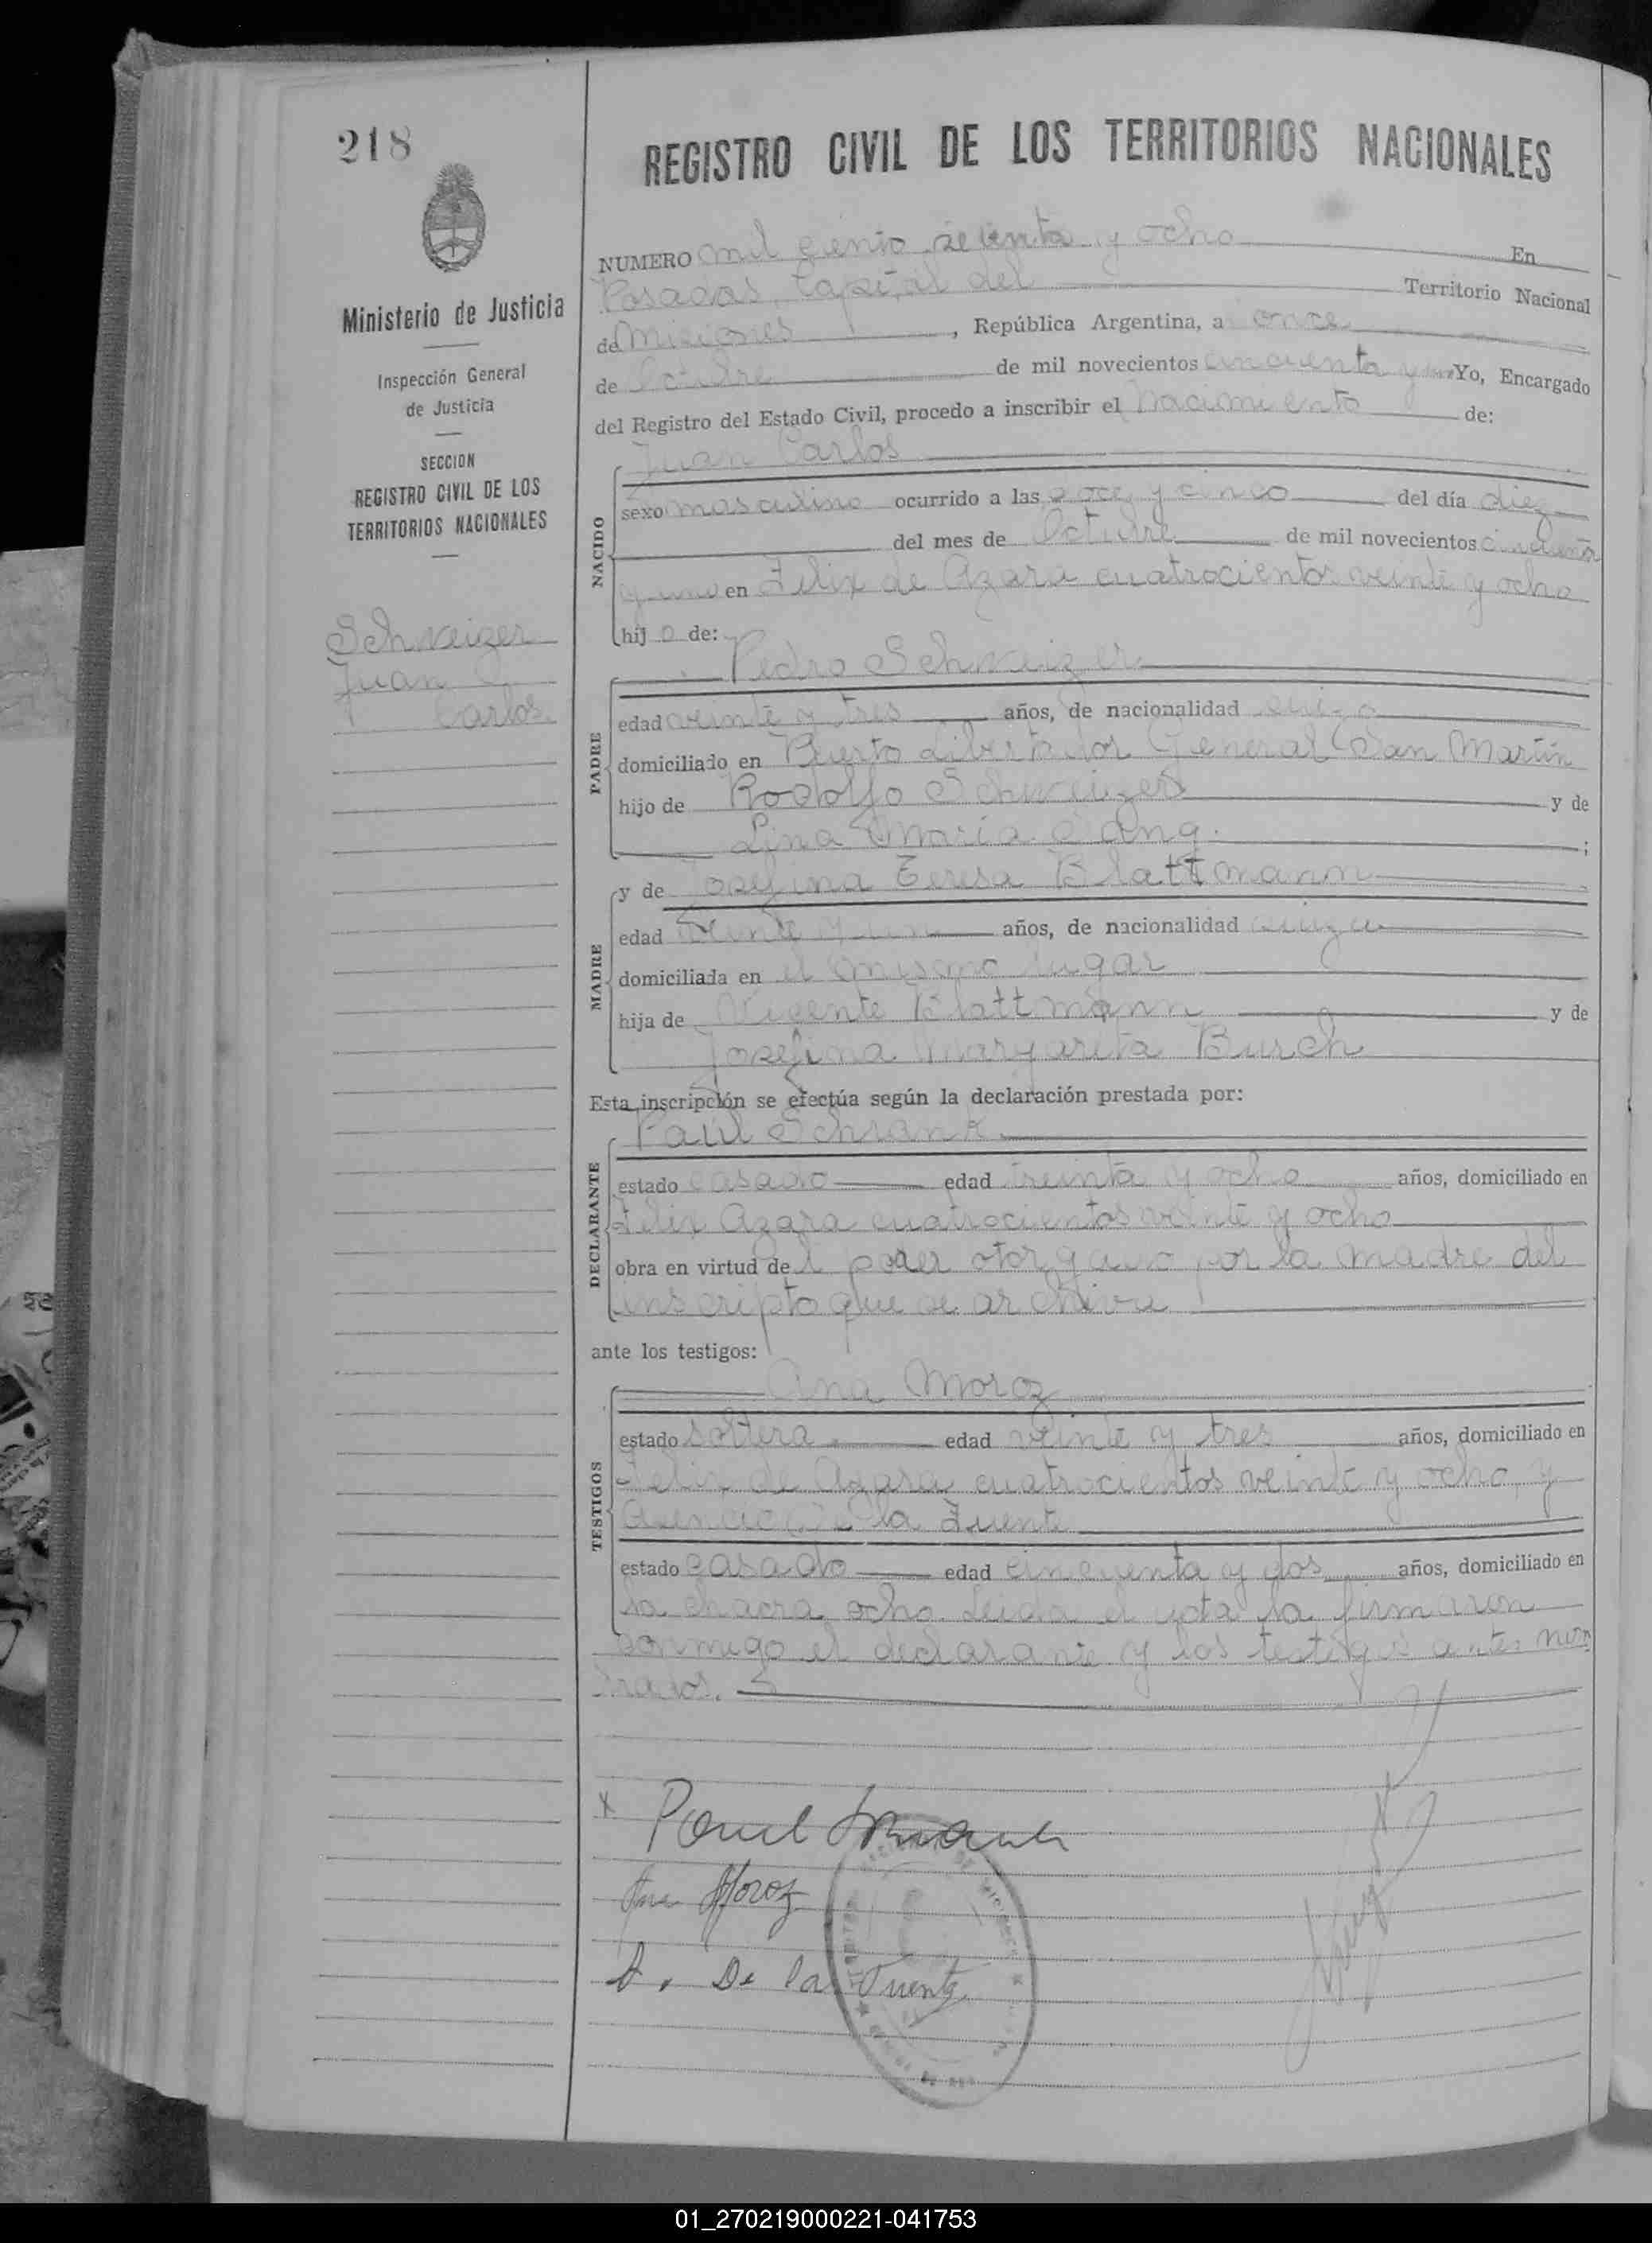 218
REGISTRO CIVIL DE LOS TERRITORIOS NACIONALES
Ministerio de Justicia
Inspección General
de Justicia
SECCION
REGISTRO CIVIL DE LOS
TERRITORIOS NACIONALES
Schweizer
Juan
Carlos
NUMERO mil ciento setenta y ocho En
Posadas, Capital del Territorio Nacional
de Misiones, República Argentina, a once
de Octubre de mil novecientos cincuenta y uno Yo, Encargado
del Registro del Estado Civil, procedo a inscribir el Nacimiento de:
NACIDO
Juan Carlos
sexo masculino ocurrido a las doce y cinco del día diez
del mes de Octubre de mil novecientos cincuenta
y uno en Felix de Azara cuatrocientos veinte y ocho
hijo de:
PADRE
Pedro Schweizer
edad veinte y tres años, de nacionalidad suizo
domiciliado en Puerto Libertador General San Martín
hijo de Rodolfo Schweizer y de
Lina Maria ;
MADRE
y de Josefina Teresa Blattmann
edad veinte y un años, de nacionalidad suiza
domiciliada en el mismo lugar
hija de Vicente Blattmann y de
Josefina Margarita Burch
Esta inscripción se efectúa según la declaración prestada por:
DECLARANTE
Paul Schrank
estado casado edad treinta y ocho años, domiciliado en
Felix Azara cuatrocientos veinte y ocho
obra en virtud del poder otorgado por la madre del
inscripto que se archiva
ante los testigos:
TESTIGOS
Ana Moroz
estado soltera edad veinte y tres años, domiciliado en
Felix de Azara cuatrocientos veinte y ocho, y
Asencio de la Fuente
estado casado edad cincuenta y dos años, domiciliado en
la chacra ocho. Leida el acta la firmaron
conmigo el declarante y los testigos antes nom
brados.
x Paul Schrank
Ana Moroz
A. De la Fuente
01_270219000221-041753